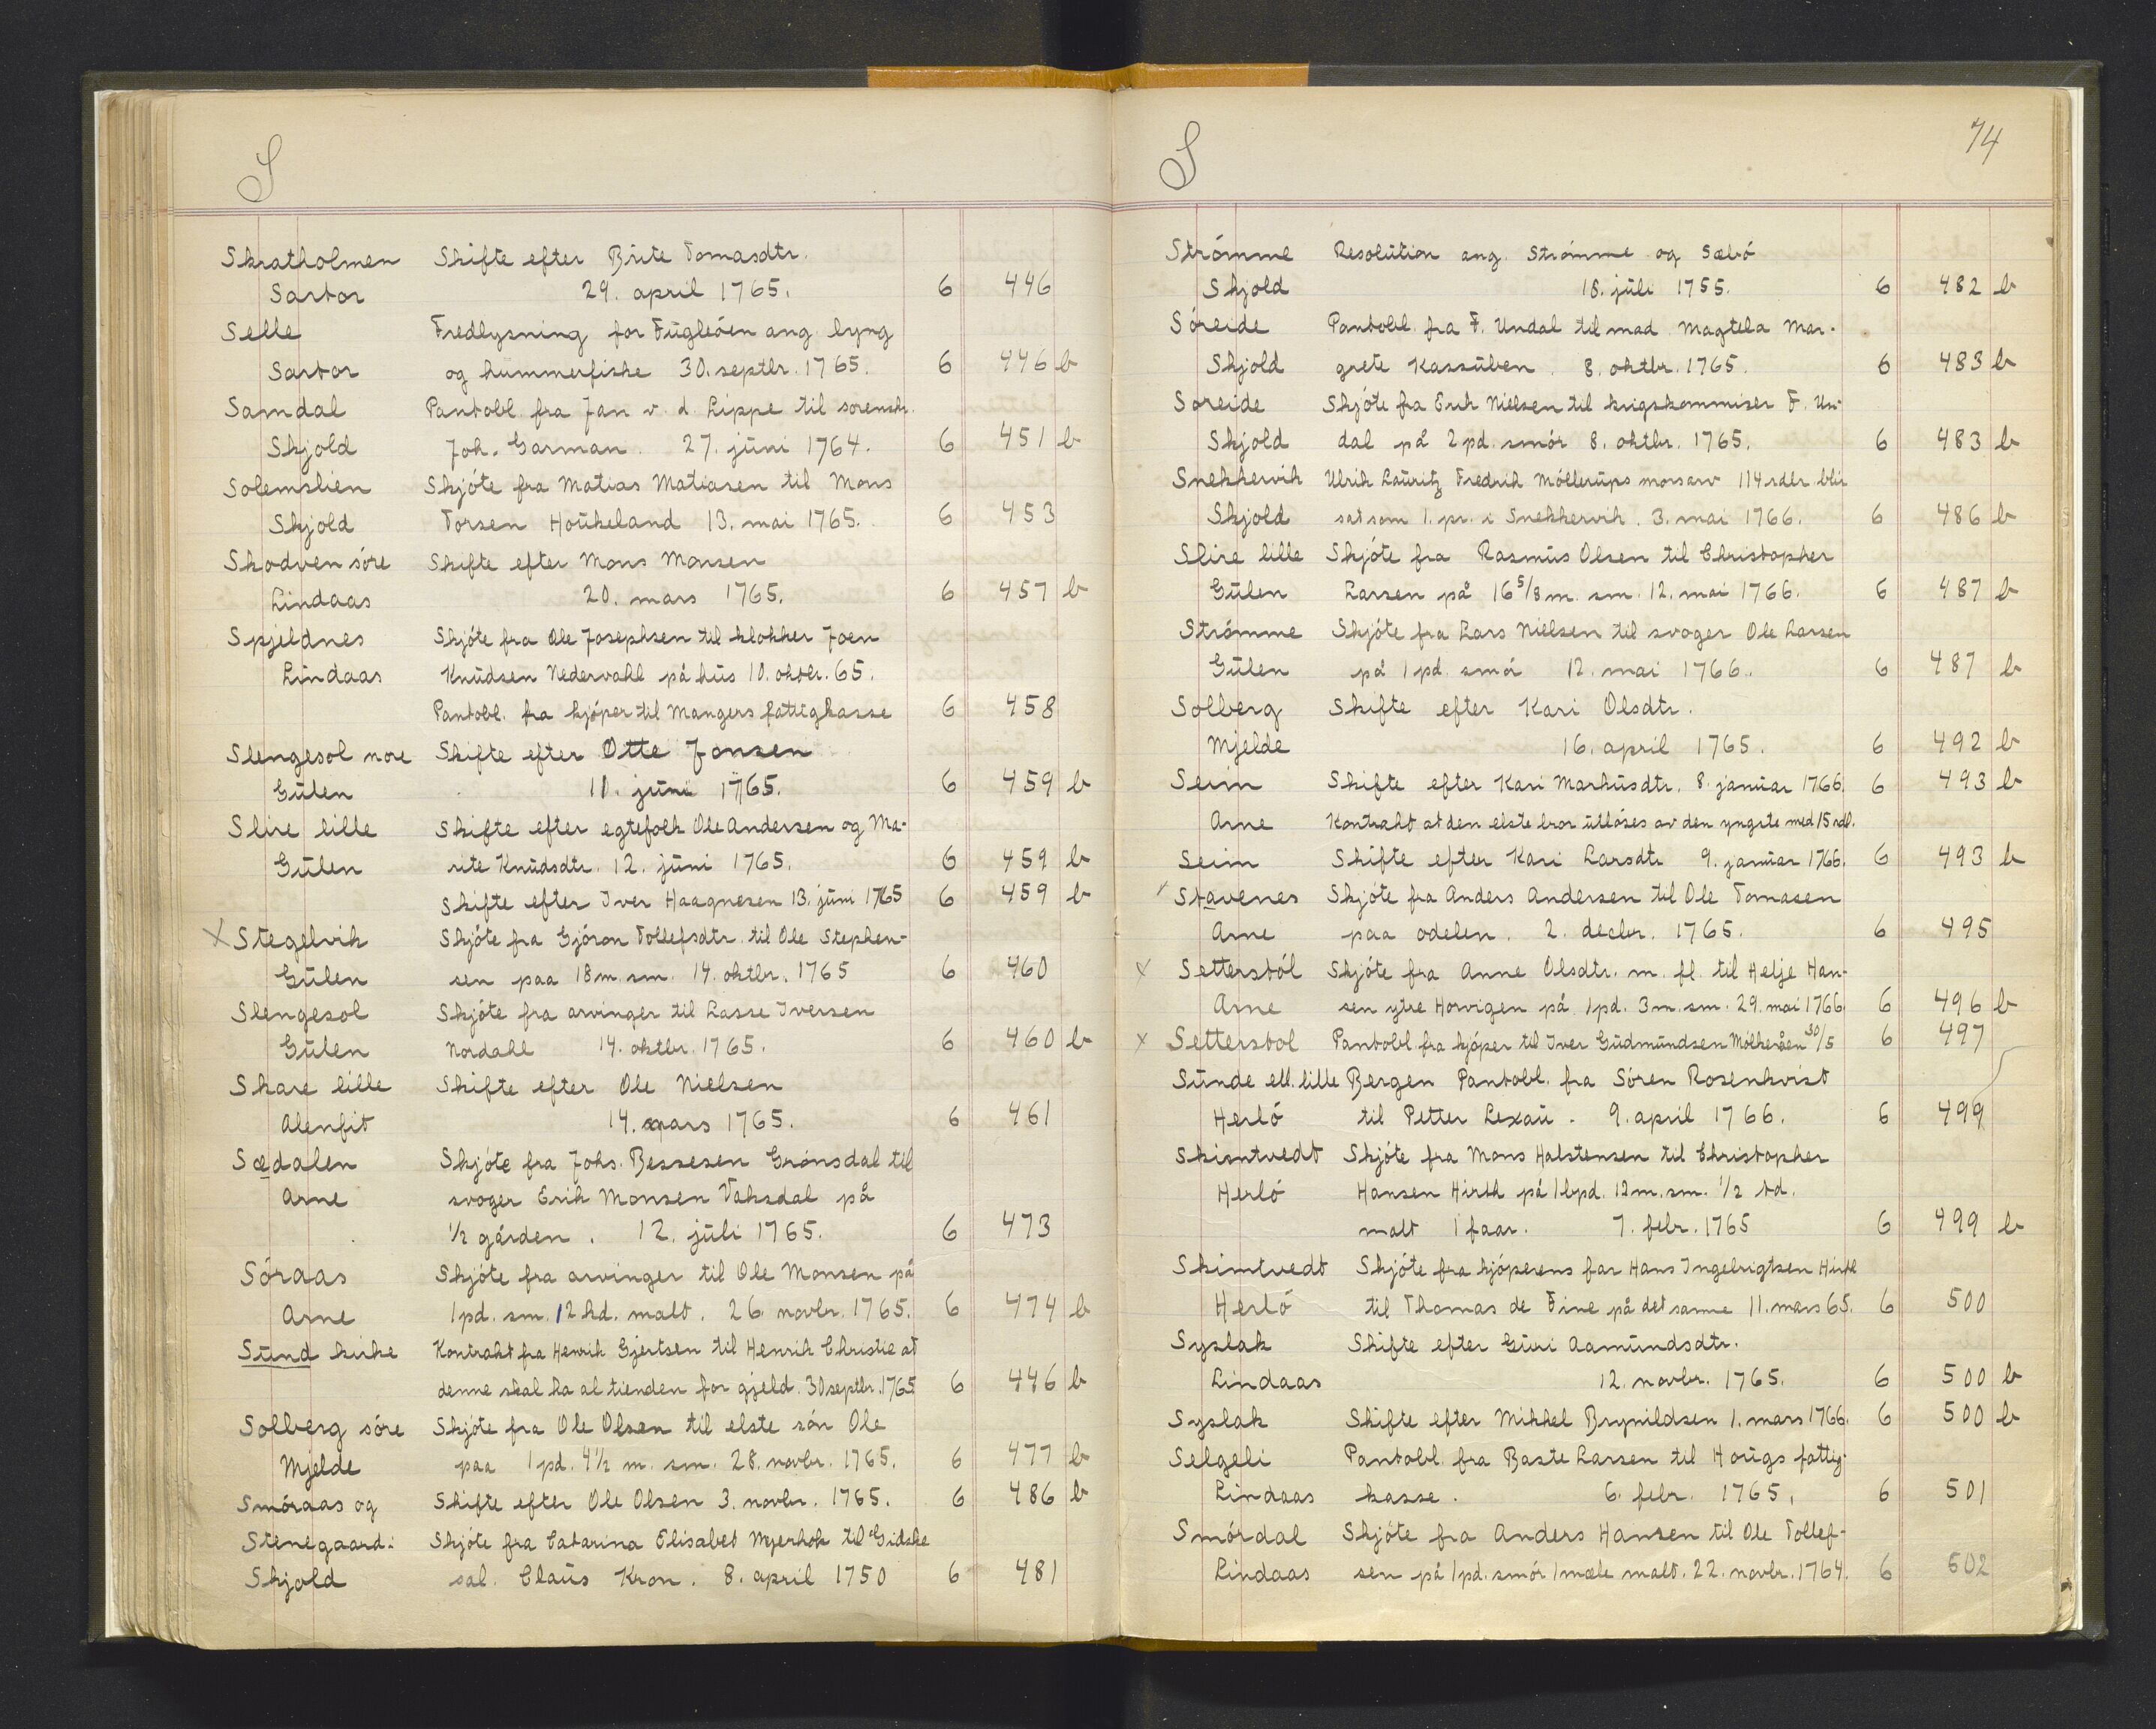 S
Skratholmen Skifte efter Brite Tomasdtr.
Sartor 29. april 1765. 6 446
Selle Fredlysning for Fügleóen ang. lyng
Sartor og hümmerfiske 30. septbr. 1765. 6 446 b
Samdal Pantobl. fra Jan v. d. Lippe til sorenskr.
Skjold Joh. Garman. 27. jüni 1764. 6 451 b
Solemslien Skjóte fra Matias Matiasen til Mons
Skjold Torsen Hoükeland 13. mai 1765. 6 453
Skodven sóre Skifte efter Mons Monsen
Lindaas 20. mars 1765. 6 457 b
Spjeldnes Skjóte fra Ole Josephsen til klokker Joen
Lindaas Knüdsen Nedervahl på hüs 10. oktbr. 65.
Pantobl. fra kjóper til Mangers fattigkasse 6 458
Slengesol nore Skifte efter Otte Jonsen
Gülen 11. jüni 1765. 6 459 b
Slire lille Skifte efter egtefolk Ole Andersen og Ma-
Gülen rite Knüdsdtr. 12. jüni 1765. 6 459 b
Skifte efter Iver Haagnesen 13. jüni 1765 6 459 b
X Stegelvik Skjóte fra Gjóron Tollefsdtr. til Ole Stephen-
Gülen sen paa 18 m. sm. 14. oktbr. 1765 6 460
Slengesol Skjóte fra arvinger til Lasse Iversen
Gülen Nordahl 14. oktbr. 1765. 6 460 b
Skare lille Skifte efter Ole Nielsen
Alenfit 14. mars 1765. 6 461
Sædalen Skjóte fra Johs. Bessesen Grónsdal til
Arne svoger Erik Monsen Vaksdal på
1/2 gården. 12. jüli 1765. 6 473
Sóraas Skjóte fra arvinger til Ole Monsen på
Arne 1 pd. sm. 12 hd. malt. 26 novbr. 1765. 6 474 b
Sünd kirke Kontrakt fra Henrik Gjertsen til Henrik Christie at
denne skal ha al tienden for gjeld. 30 septbr. 1765 6 446 b
Solberg sóre Skjóte fra Ole Olsen til elste són Ole
Mjelde paa 1 pd. 4 1/2 m. sm. 28. novbr. 1765. 6 477 b
Smóraas og Skifte efter Ole Olsen 3. novbr. 1765. 6 486 b
Stenegaard: Skjóte fra Catarina Elisabet Myerhok til Gidske
Skjold sal. Claüs Kron. 8. april 1750 6 481
S 74
Strómme Resolütion ang. Strómme og Sæbó
Skjold 18. jüli 1755. 6 482 b
Sóreide Pantobl. fra F. Undal til mad. Magtela Mar-
Skjold grete Kassüben. 8. oktbr. 1765. 6 483 b
Soreide Skjóte fra Erik Nielsen til krigskommiser F. Un-
Skjold dal på 2 pd. smór 8. oktbr. 1765. 6 483 b
Snekkervik Ulrik Laüritz Fredrik Móllerüps morsarv 114 rdlr. blir
Skjold sat som 1. pr. i Snekkervik. 3. mai 1766. 6 486 b
Slire lille Skjóte fra Rasmüs Olsen til Christopher
Gülen Larsen på 16 5/8 m. sm. 12. mai 1766. 6 487 b
Strómme Skjóte fra Lars Nielsen til svoger Ole Larsen
Gülen på 1 pd. smór 12. mai 1766. 6 487 b
Solberg Skifte efter Kari Olsdtr.
Mjelde 16. april 1765. 6 492 b
Seim Skifte efter Kari Marküsdtr. 8. janüar 1766. 6 493 b
Arne Kontrakt at den elste bror ütlóses av den yngste med 15 rdl.
Seim Skifte efter Kari Larsdtr 9. janüar 1766. 6 493 b
Stavenes Skjóte fra Anders Andersen til Ole Tomasen
Arne paa odelen. 2. decbr. 1765. 6 495
X Setterstól Skjóte fra Anne Olsdtr. m. fl. til Helje Han-
Arne sen ytre Horvigen på 1 pd. 3 m. sm. 29. mai 1766 6 496 b
X Setterstol Pantobl. fra kjóper til Iver Güdmündsen Mólkeråen 30/5 6 497
Sünde ell. lille Bergen Pantobl. fra Sóren Rosenkvist
Herló til Petter Lexaü. 9. april 1766. 6 499
Skiontvedt Skjóte fra Mons Halstensen til Christopher
Herló Hansen Hirth på 1 bpd. 12 m. sm. 1/2 td.
malt 1 faar. 7. febr. 1765 6 499 b
Skimtvedt Skjóte fra kjóperens far Hans Ingebrigtsen Hirth
Herló til Thomas de Fine på det samme 11. mars 65. 6 500
Syslak Skifte efter Güri Aamündsdtr.
Lindaas 12. novbr. 1765. 6 500 b
Syslak Skifte efter Mikkel Brynildsen 1. mars 1766. 6 500 b
Selgeli Pantobl. fra Baste Larsen til Hoügs fattig-
Lindaas kasse. 6. febr. 1765. 6 501
Smórdal Skjóte fra Anders Hansen til Ole Tollef-
Lindaas sen på 1 pd. smór 1 mæle malt. 22. novbr. 1764. 6 502